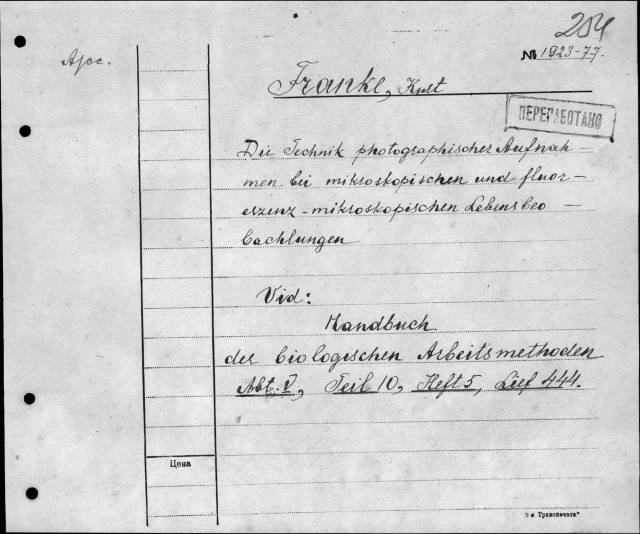 204
Асс.
№ 1923-77.
Franke, Kurt
ПЕРЕРАБОТАНО
Die Technik photographischer Aufnah-
men bei mikroskopischen und fluor-
eszenz-mikroskopischen Lebensbeo-
bachlungen
Vid:
Handbuch
der biologischen Arbeitsmethoden
Abt. V, Teil 10, Heft 5, Lief 444.
Цена
5-я „Транспечати"